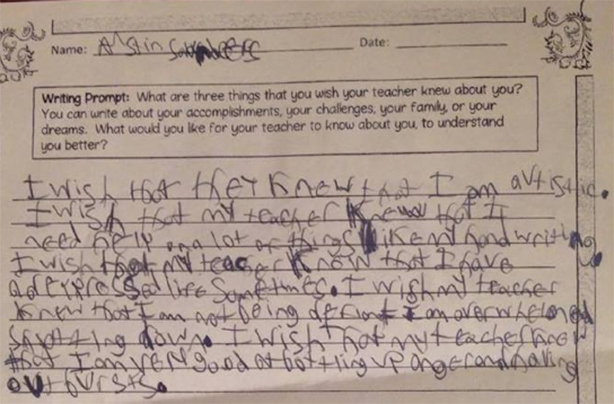 Name: Austin Date:
Writing Prompt: What are three things that you wish your teacher knew about you?
You can write about your accomplishments, your challenges, your family, or your
dreams. What would you like for your teacher to know about you, to understand
you better?
I wish that they knew that I am autistic.
I wish that my teacher knew that I
need help on a lot of things like my handwriting.
I wish that my teacher knew that I have
a depressed life sometimes. I wish my teacher
knew that I am not being defiant I am overwhelmed
shutting down. I wish that my teacher knew
that I am very good at bottling up anger and having
outbursts.